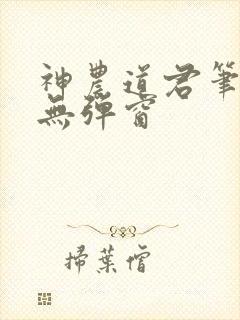 神農道君筆
無彈窗
掃葉僧